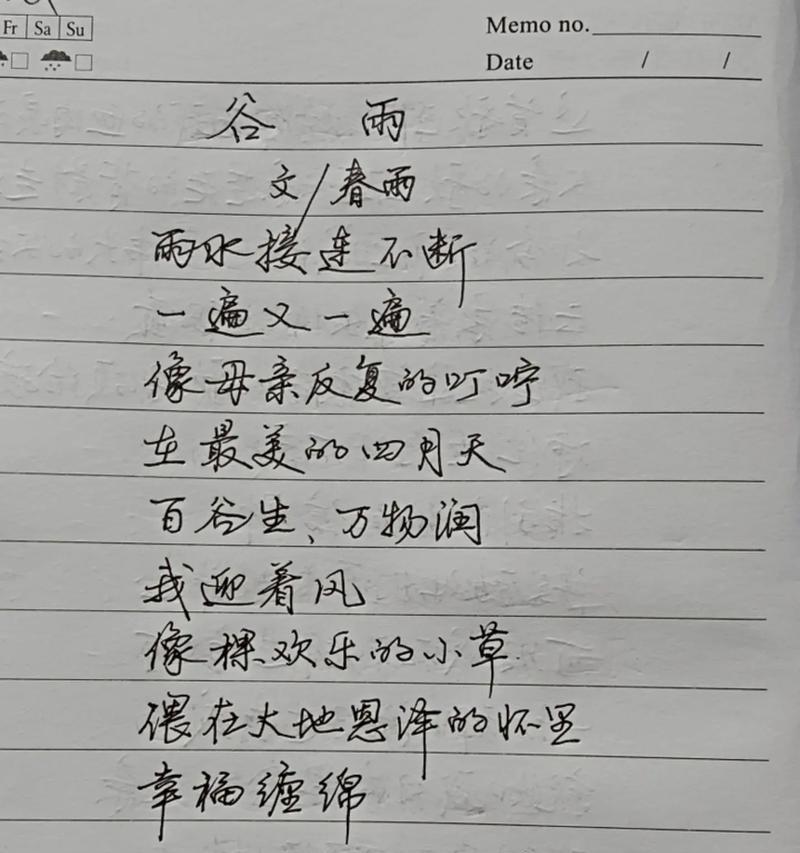 Fr Sa Su
Memo no.
Date / /
谷 雨
文/春雨
雨水接连不断
一遍又一遍
像母亲反复的叮咛
在最美的四月天
百谷生、万物润
我迎着风
像棵欢乐的小草
偎在大地恩泽的怀里
幸福缠绵